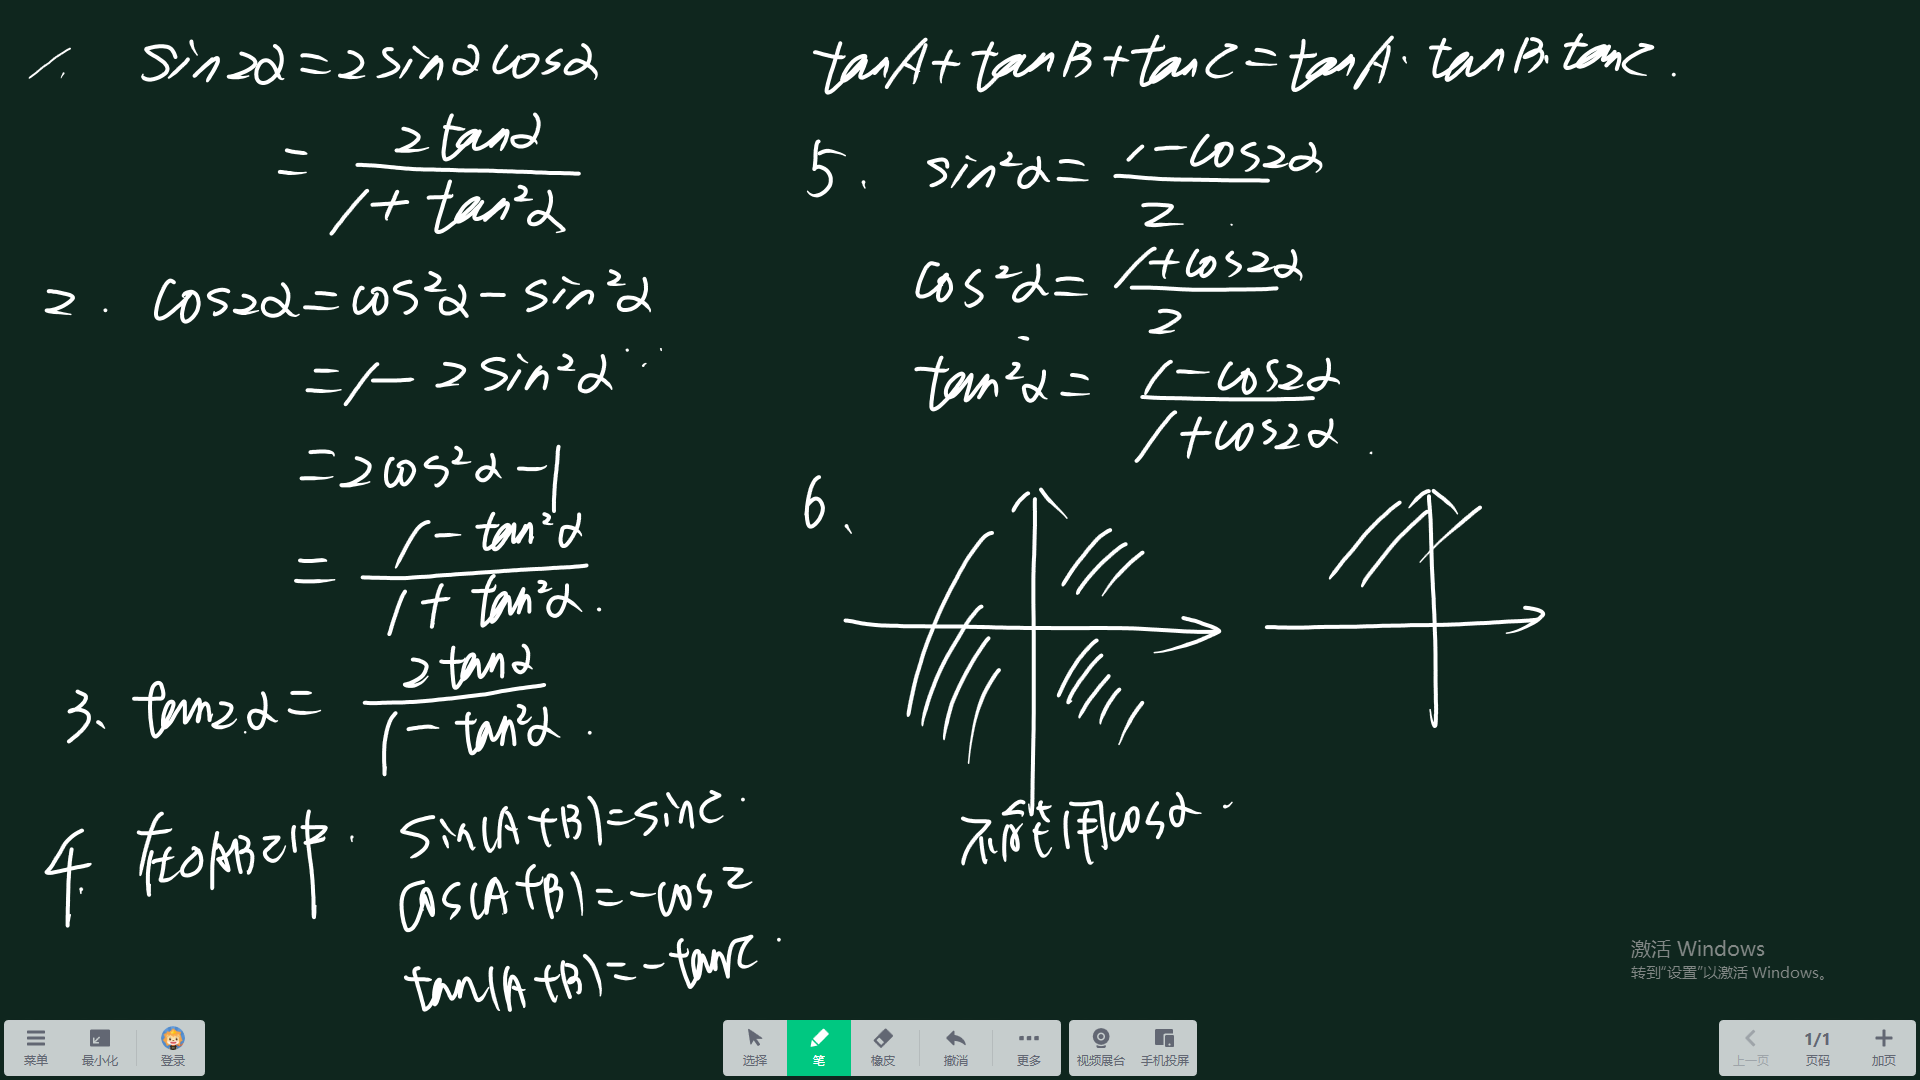 1. sin2α=2sinαcosα
= 2tanα / 1+tan²α
2. cos2α=cos²α-sin²α
=1-2sin²α
=2cos²α-1
= 1-tan²α / 1+tan²α.
3、tan2α= 2tanα / 1-tan²α.
4. 在△ABC中. sin(A+B)=sinC.
cos(A+B)=-cosC
tan(A+B)=-tanC.
tanA+tanB+tanC=tanA·tanB·tanC.
5. sin²α= 1-cos2α / 2.
cos²α= 1+cos2α / 2
tan²α= 1-cos2α / 1+cos2α.
6、
不能用cosα.
激活 Windows
转到“设置”以激活 Windows。
菜单 最小化 登录 选择 笔 橡皮 撤消 更多 视频展台 手机投屏 上一页 1/1 页码 加页